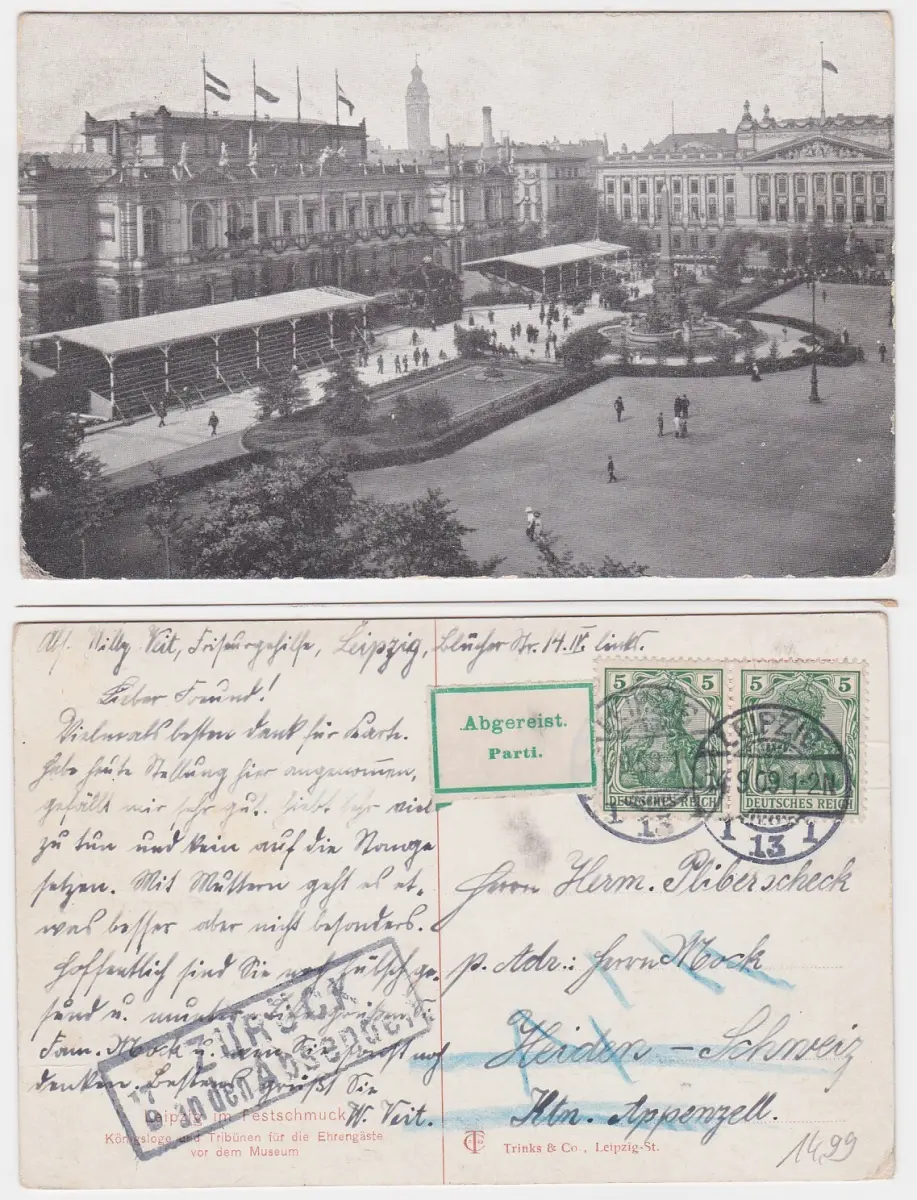 Abs. Willy Veit, Friseurgehilfe, Leipzig, Blücher Str. 14. IV. links.
Lieber Freund!
Vielmals besten Dank für Karte.
Habe heute Stellung hier angenommen,
gefällt mir sehr gut. sehr viel
zu tun und kein auf die Stange
setzen. Mit Muttern geht es et-
was besser aber nicht besonders.
Hoffentlich sind Sie noch hübsch ge-
sund u. munter. Sie
Fam. Mock u. wen Sie sonst noch
denken. Bestens grüßt Sie
W. Veit.
ZURÜCK
an den Absender
Leipzig im Festschmuck
Königsloge und Tribünen für die Ehrengäste
vor dem Museum
Abgereist.
Parti.
5 5 5 5
DEUTSCHES REICH DEUTSCHES REICH
LEIPZIG
9.09.1-2N
1 13
1 13 1
Herrn Herm. Pliberscheck
p. Adr.: Herrn Mock
Heiden – Schweiz
Ktn. Appenzell.
Trinks & Co., Leipzig-St.
14,99